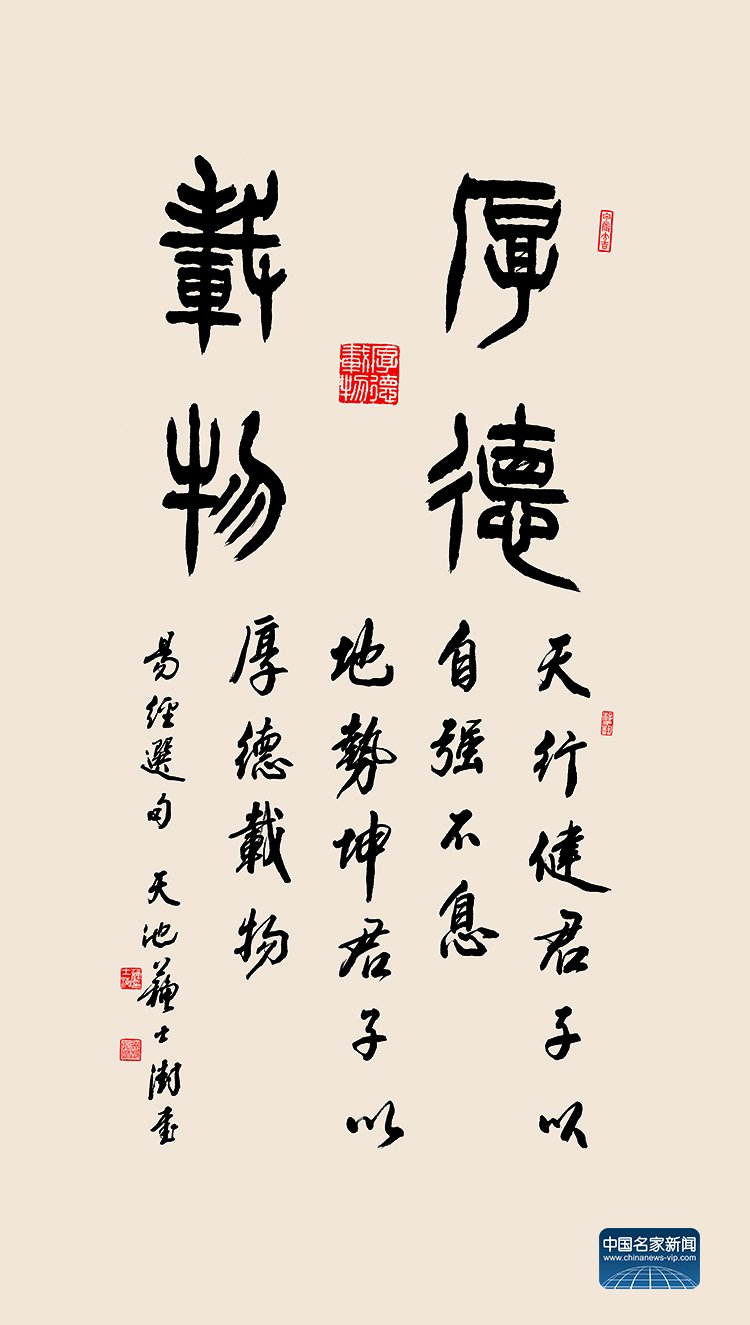 厚德
載物
厚德載物
天行健君子以
自強不息
地勢坤君子以
厚德載物
易經選句 天池蘇士澍書
中国名家新闻
www.chinanews-vip.com